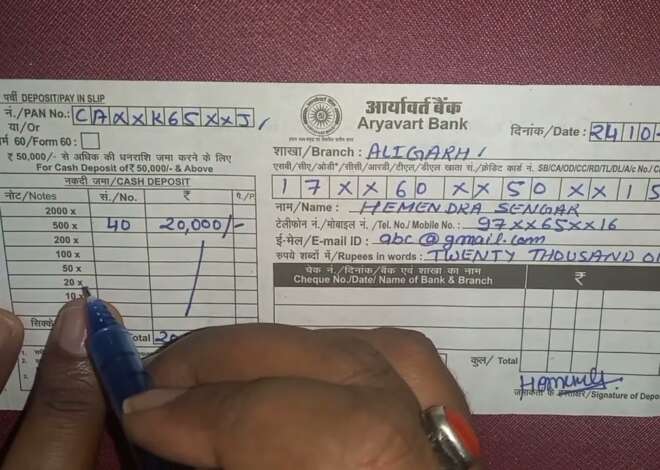 पर्ची DEPOSIT/PAY IN SLIP
नं./PAN No.: CAXXK65XXJ,
या/Or
र्म 60/Form 60 :
₹ 50,000/- से अधिक की धनराशि जमा करने के लिए
For Cash Deposit of ₹ 50,000/- & Above
नकदी जमा/CASH DEPOSIT
नोट/Notes सं./No. ₹ पै./P
2000 x
500 x 40 20,000/-
200 x
100 x
50 x
20 x
10 x
Total
आर्यावर्त बैंक
Aryavart Bank
दिनांक/Date : 2410
शाखा/Branch : ALIGARH,
एसबी/सीए/ओडी/सीसी/आरडी/टीडी/डीएल खाता सं./क्रेडिट कार्ड नं. SB/CA/OD/CC/RD/TL/DL/A/c No./C
17XX60XX50XX15
नाम/Name : HEMENDRA SENGAR
टेलीफोन नं./मोबाइल नं. /Tel. No./ Mobile No. : 97XX65XX16
ई-मेल/E-mail ID : abc@gmail.com
रुपये शब्दों में/Rupees in words : TWENTY THOUSAND
चेक नं./दिनांक/बैंक एवं शाखा का नाम ₹
Cheque No./Date/ Name of Bank & Branch
कुल/ Total
जमाकर्ता के हस्ताक्षर/Signature of Depo